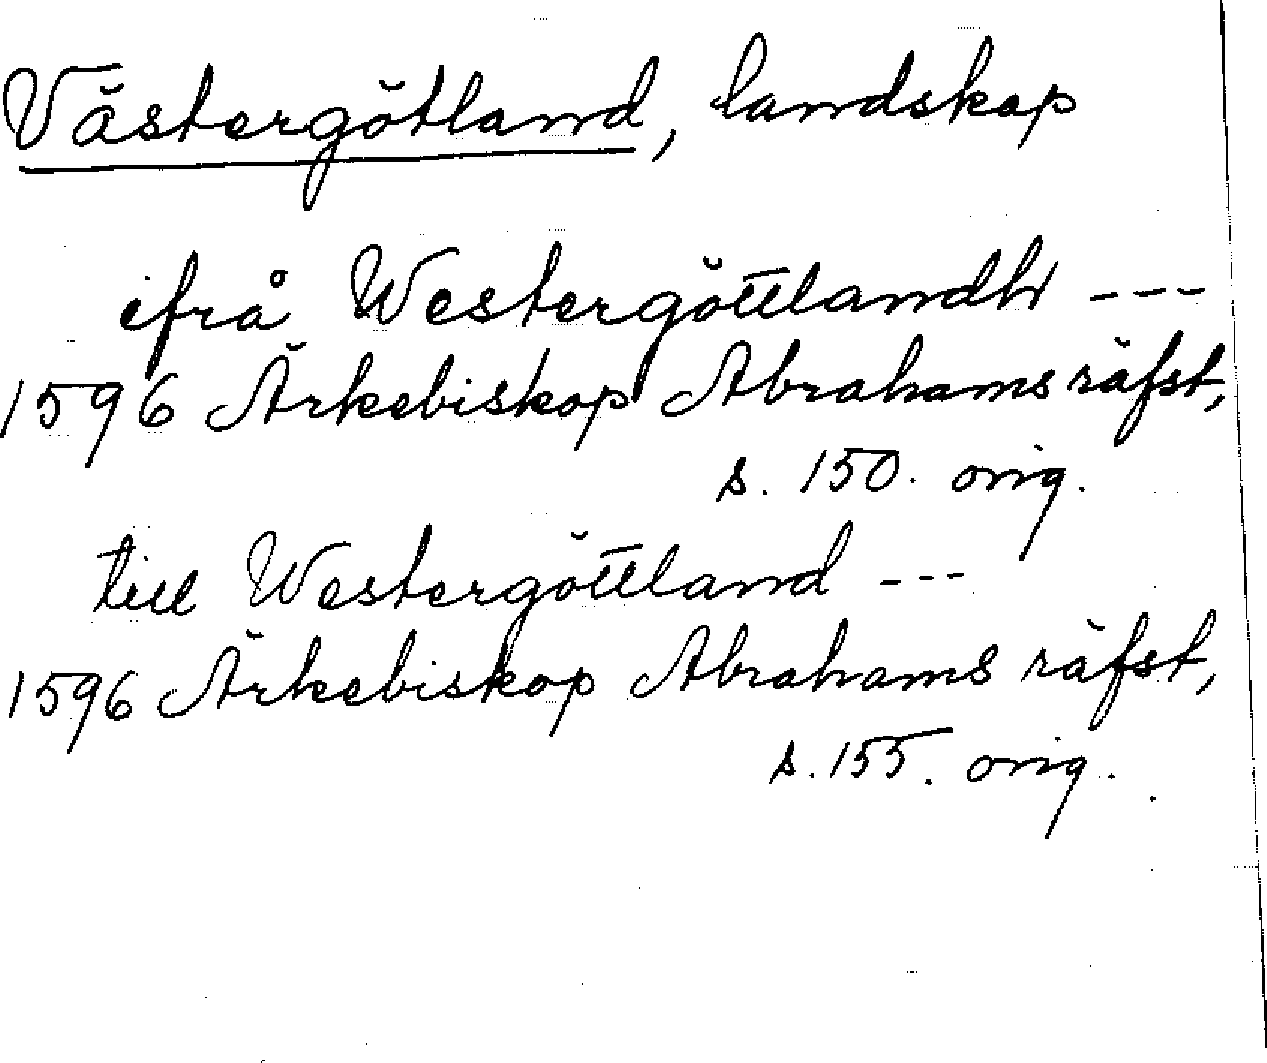 Västergötland, landskap
ifrå Westergöttlandh ---
1596 Ärkebiskop Abrahams räfst,
s. 150. orig.
till Westergöttland ---
1596 Ärkebiskop Abrahams räfst,
s. 155. orig.